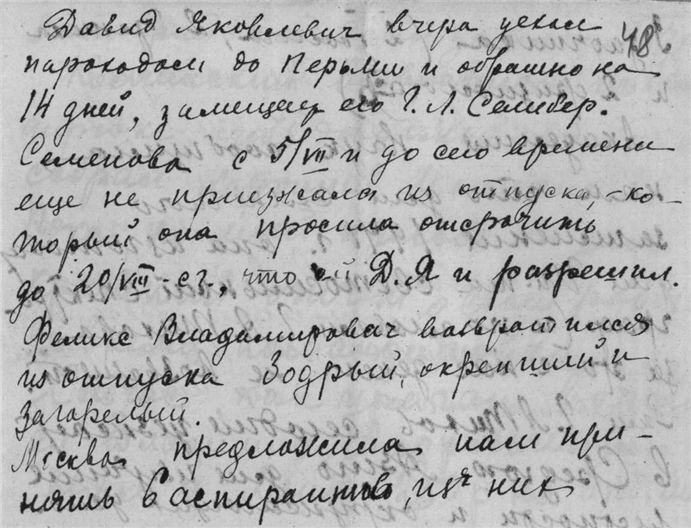 48
Давид Яковлевич вчера уехал
пароходом до Перьми и обратно на
14 дней, замещает его Г. Л. Селибер.
Семенова с 5/VII и до сего времени
еще не приезжала из отпуска, ко-
торый она просила отсрочить
до 20/VIII - с.г., что ей Д.Я и разрешил.
Феликс Владимирович возвратился
из отпуска бодрый, окрепший и
загорелый.
Москва предложила нам при-
нять 6 аспирантов, из них